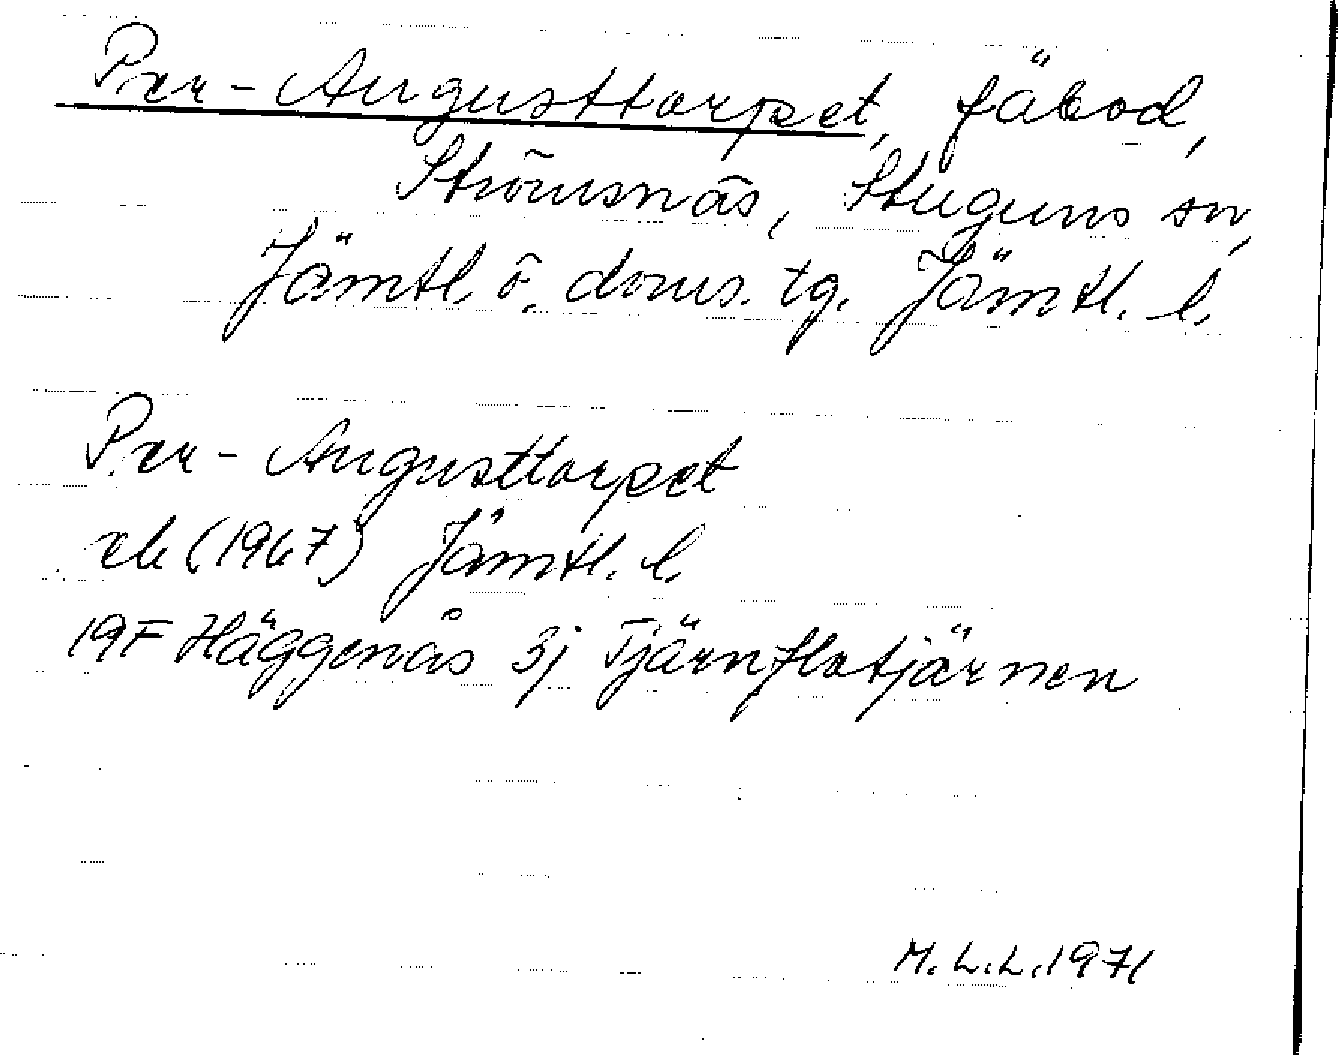 Per-Augusttorpet, fäbod,
Strömsnäs, Stuguns sn,
Jämtl. ö. doms. tg. Jämtl. l.
Per-Augusttorpet
ek (1967) Jämtl. l.
19F Häggenås 3j Tjärnflotjärnen
M.L.L. 1971